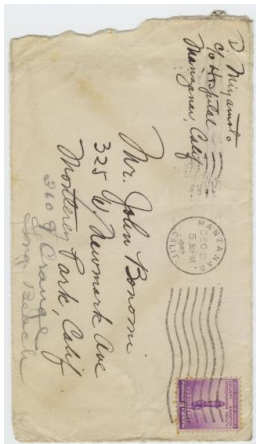 D. Miyamoto
c/o Hospital
Manzanar, Calif
MANZANAR
DEC
5 PM
CALIF.
Mr. John Bonomi
325 W Newmark Ave
Monterey Park, Calif
260 Orange
Long Beach